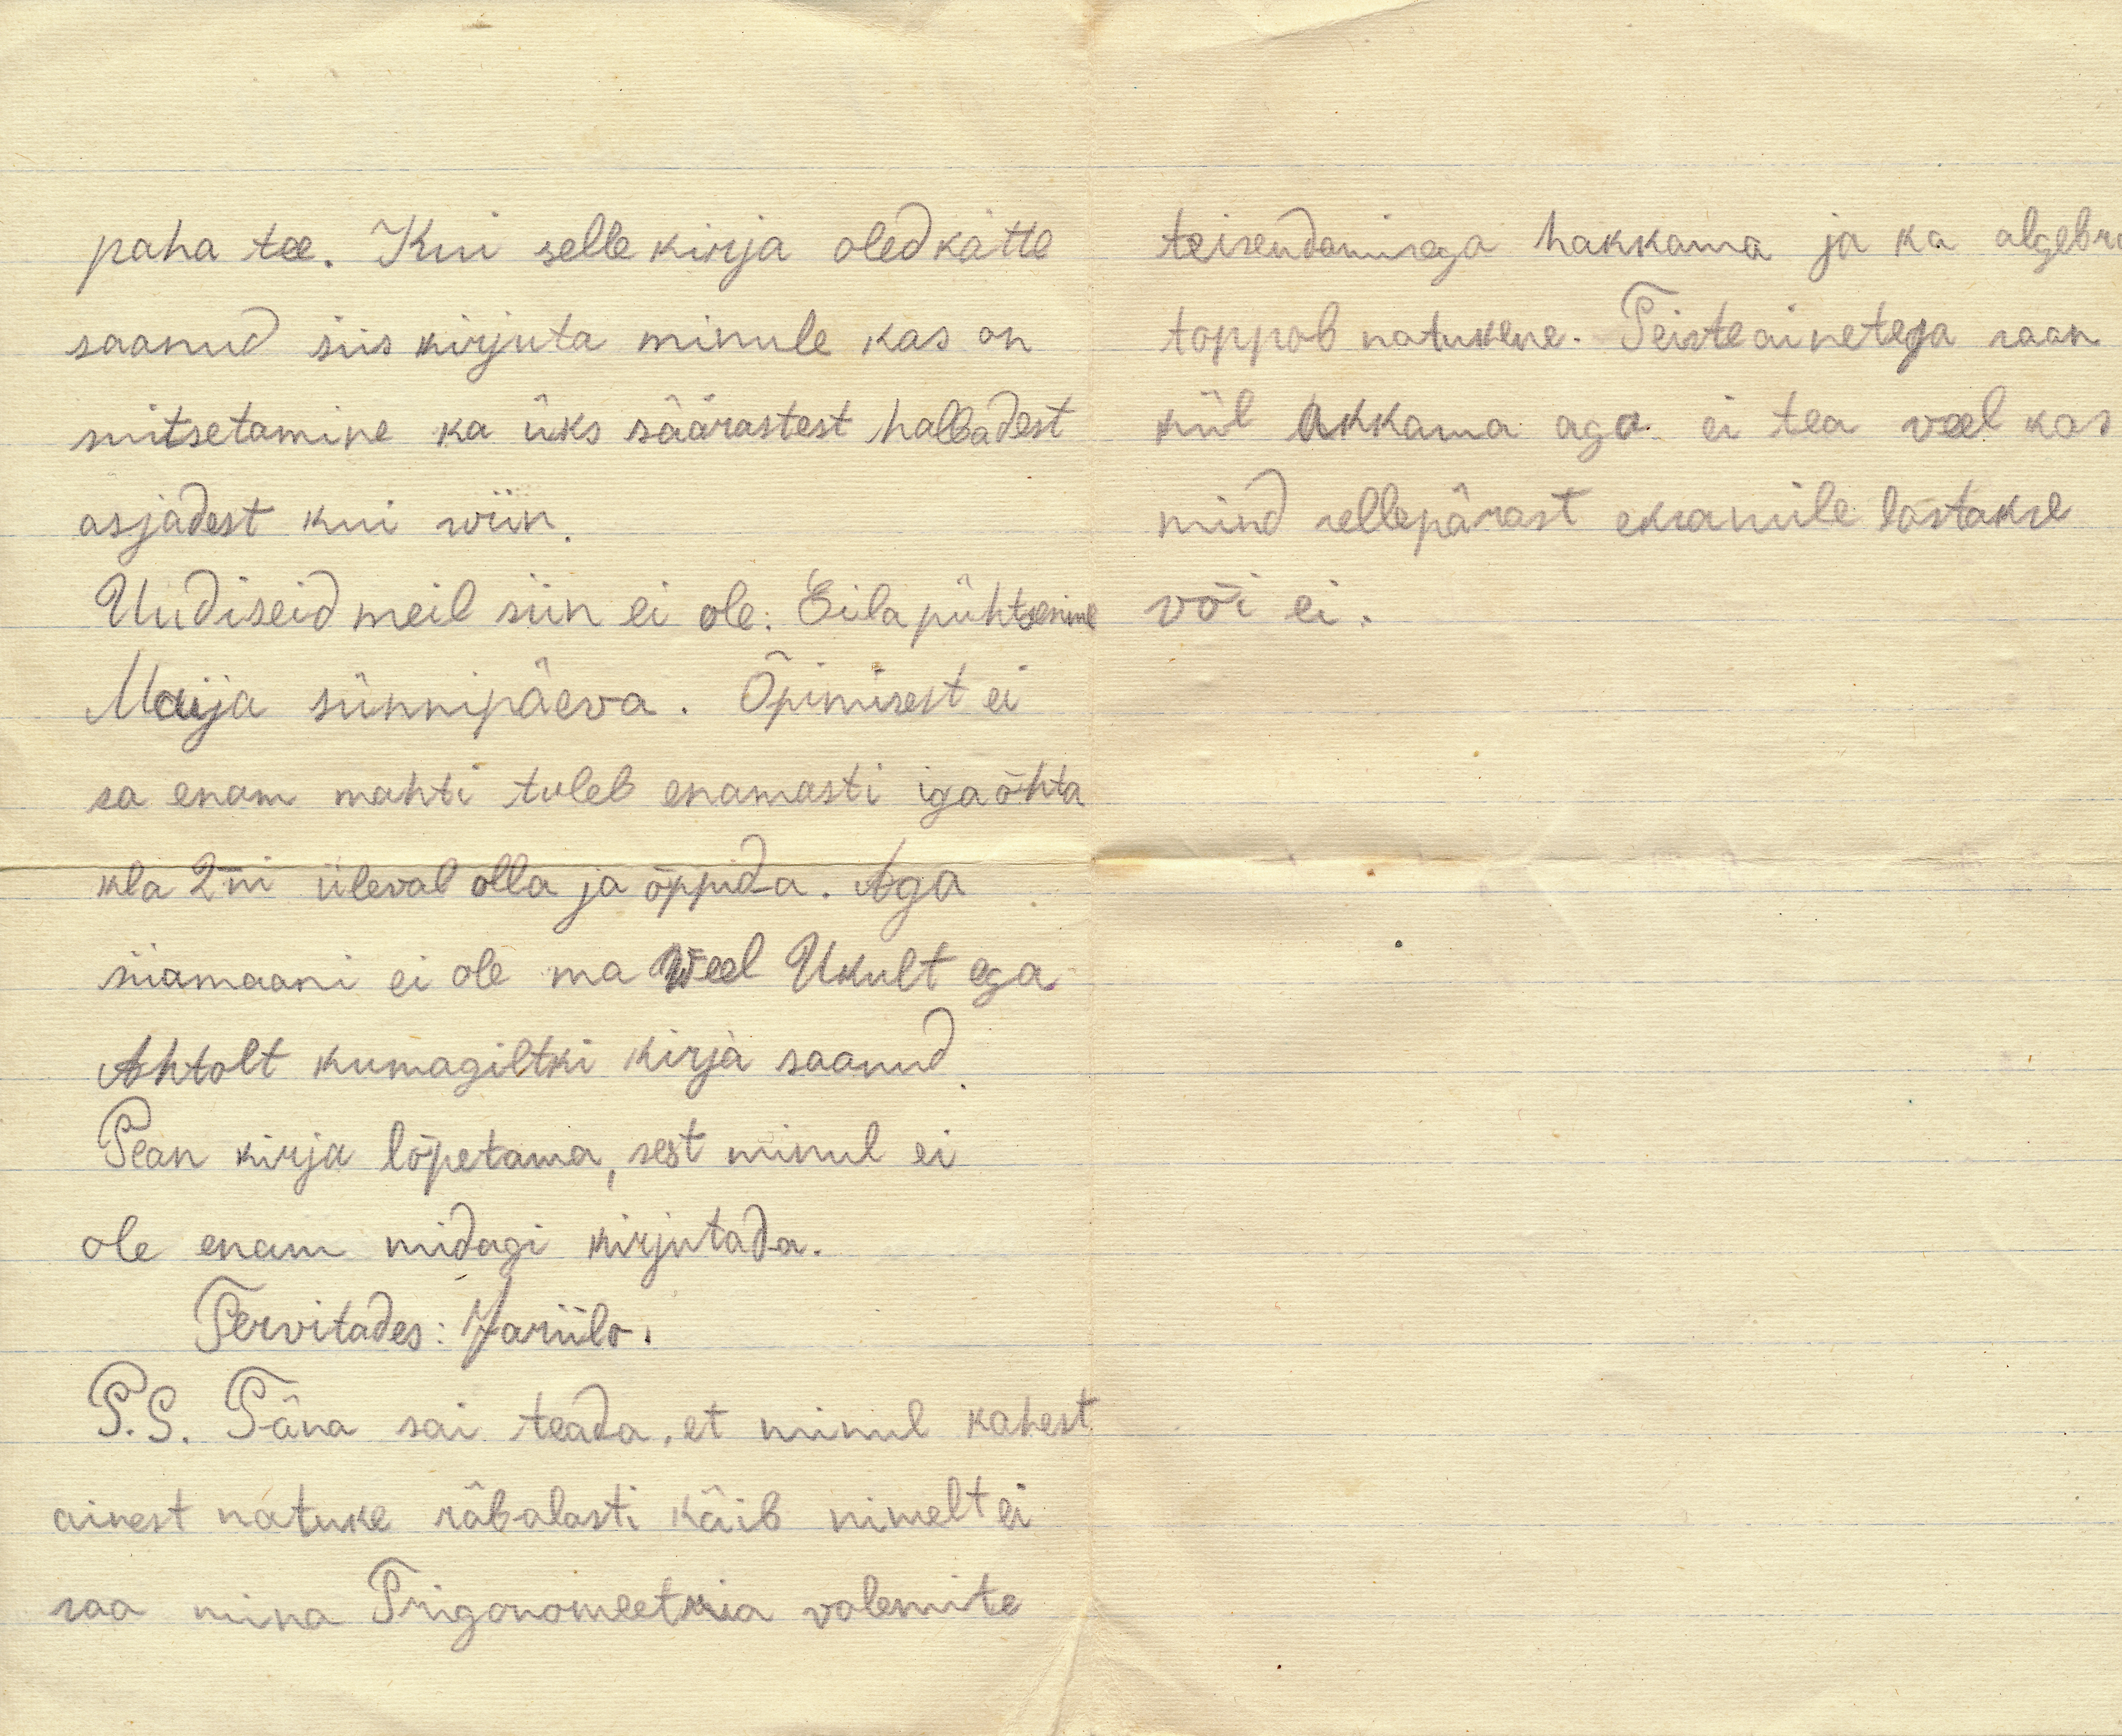 paha tee. Kui selle kirja oled kätte
saanud siis kirjuta minule kas on
suitsetamine ka üks säärastest halbadest
asjadest kui wiin.
Uudiseid meil siin ei ole. Eila pühtsesime
Maija sünnipäeva. Õpimisest ei
sa enam mahti tuleb enamasti iga õhta
kla 2ni üleval olla ja õppida. Aga
siiamaani ei ole ma Weel Ukult ega
Ahtolt kumagiltki kirja saanud.
Pean kirja lõpetama, sest minul ei
ole enam midagi kirjutada.
Tervitades:
P.S. Täna sai teada, et minul kahest
ainest natuke räbalasti käib nimelt ei
saa mina Trigonomeetria valemite
teisendamisega hakkama ja ka algebra
toppab natukene. Teiste ainetega saan
kül akkama aga ei tea veel kas
mind sellepärast eksamile lastakse
või ei.